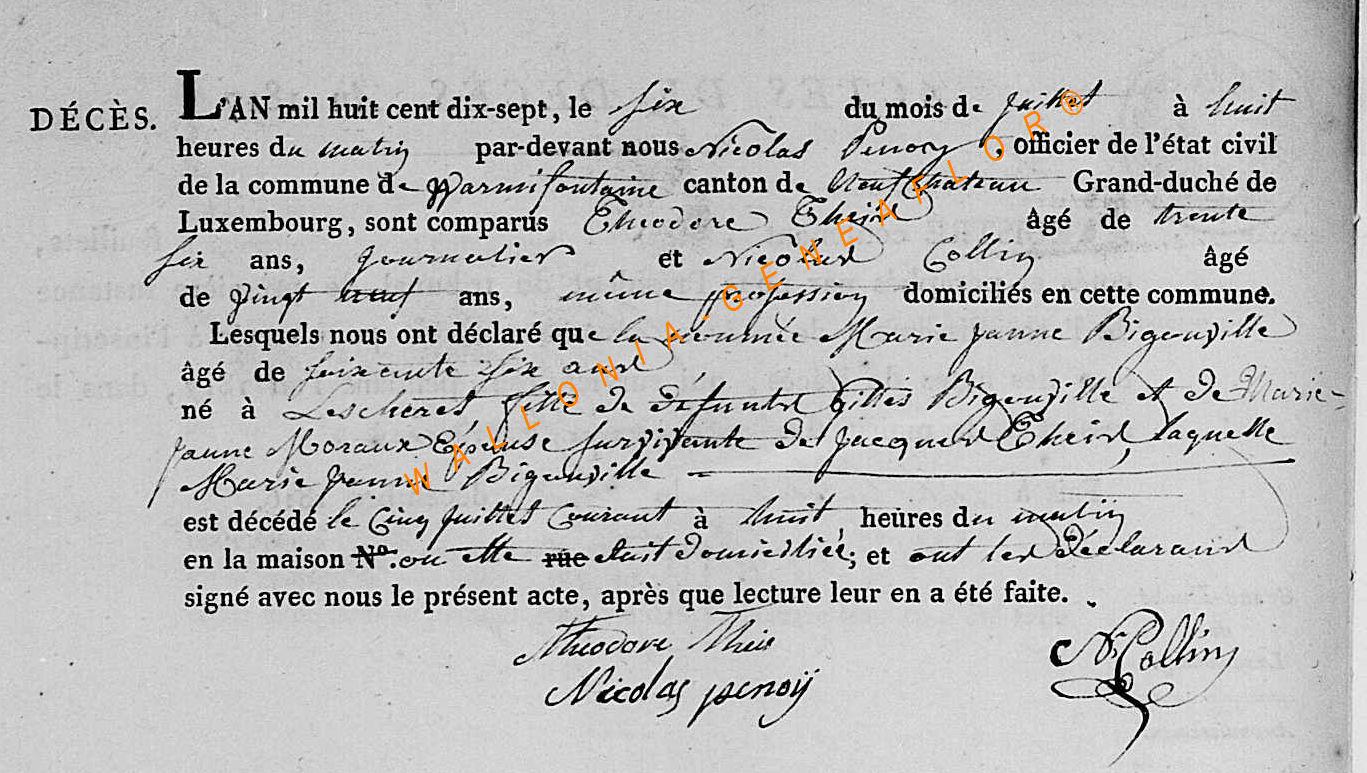 DÉCÈS. L'AN mil huit cent dix-sept, le six du mois de juillet à huit
heures du matin par-devant nous Nicolas Penoy, officier de l'état civil
de la commune de Warmifontaine canton de Neufchateau Grand-duché de
Luxembourg, sont comparus Theodore Theis âgé de trente
six ans, journalier et Nicolas Collin âgé
de vingt neuf ans, même profession domiciliés en cette commune.
Lesquels nous ont déclaré que la nommée Marie Janne Bigonville
âgé de soixante six ans
né à Lescheret fille de défunts Gilles Bigonville et de Marie-
Janne Moraux Épouse survivante de Jacques Theis, laquelle
Marie Janne Bigonville
est décédé le Cinq juillet Courant à huit heures du matin
en la maison N.º où elle rue était domiciliée; et ont les déclarans
signé avec nous le présent acte, après que lecture leur en a été faite.
Theodore Theis
Nicolas penoÿ
N. Collin
WALLONIA-GENEAFLOR®